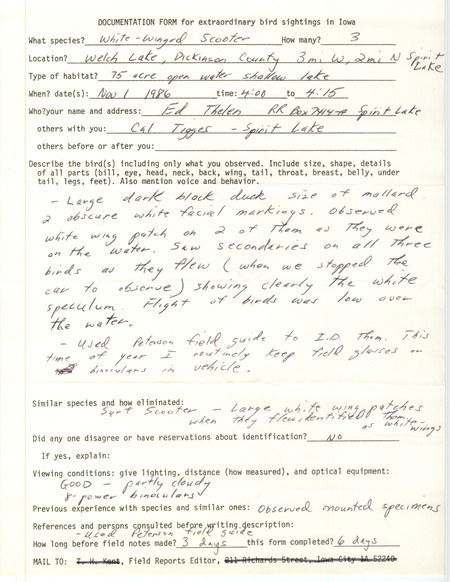 DOCUMENTATION FORM for extraordinary bird sightings in Iowa
What species? White-Winged Scooter How many? 3
Location? Welch Lake, Dickinson County 3mi W, 2mi N Spirit Lake
Type of habitat? 75 acre open water shallow lake
When? date(s): Nov 1 1986 time: 4:00 to 4:15
Who?your name and address: Ed Thelen RR Box Spirit Lake
others with you: Cal Tigges - Spirit Lake
others before or after you:
Describe the bird(s) including only what you observed. Include size, shape, details
of all parts (bill, eye, head, neck, back, wing, tail, throat, breast, belly, under
tail, legs, feet). Also mention voice and behavior.
- Large dark black duck size of mallard
2 obscure white facial markings. Observed
white wing patch on 2 of Them as They were
on the water. Saw secondaries on all Three
birds as they flew (when we stopped the
car to observe) showing clearly the white
speculum. Flight of birds was low over
the water.
- Used Peterson field guide to I.D. Them. This
time of year I routinely keep field glasses or
binoculars in vehicle.
Similar species and how eliminated:
Surf Scooter - Large white wing patches
when they flew identified Them
as white-wings
Did any one disagree or have reservations about identification? NO
If yes, explain:
Viewing conditions: give lighting, distance (how measured), and optical equipment:
GOOD - partly cloudy
8-power binoculars
Previous experience with species and similar ones: Observed mounted specimens
References and persons consulted before writing description:
- Used Peterson field guide
How long before field notes made? 3 days this form completed? 6 days
MAIL TO: T. H. Kent, Field Reports Editor, 211 Richards Street, Iowa City IA 52240